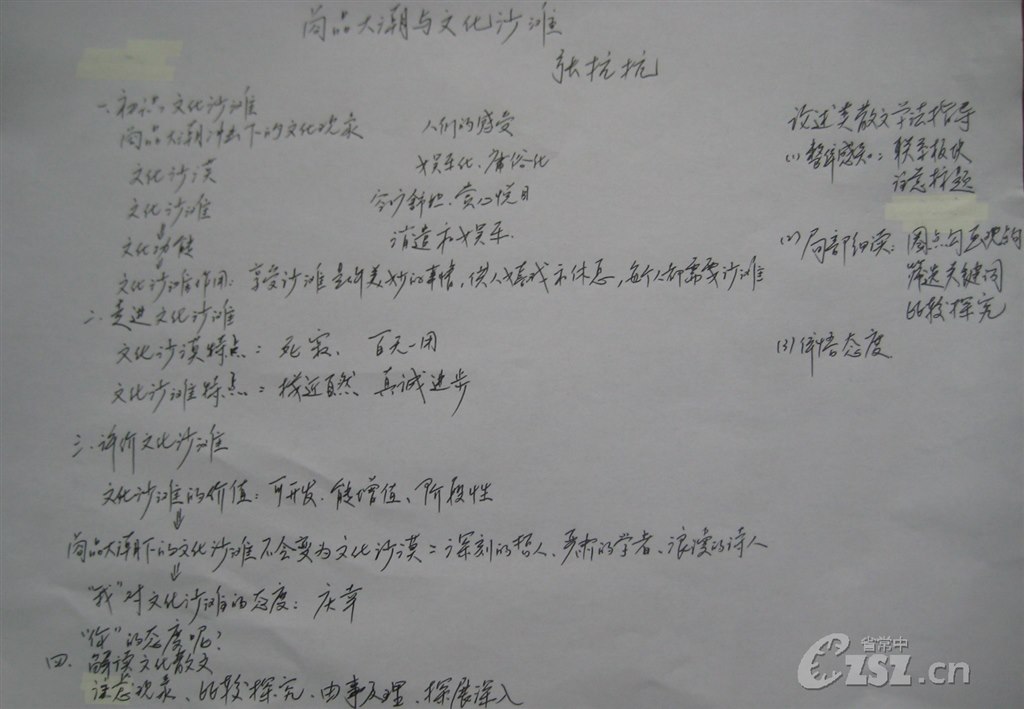 商品大潮与文化沙滩
张抗抗
一、初识文化沙滩
商品大潮冲击下的文化现象 人们的感受
文化沙漠 娱乐化、庸俗化
文化沙滩 令旷神怡、赏心悦目
↓
文化功能 消遣和娱乐.
文化沙滩作用: 享受沙滩是件美妙的事情,供人嬉戏和休息,每个人都需要沙滩
二、走进文化沙滩
文化沙漠特点: 死寂、百无一用
文化沙滩特点: 接近自然、真诚进步
三、评价文化沙滩
文化沙滩的价值: 可开发、能增值、阶段性
⇓
商品大潮下的文化沙滩不会变为文化沙漠: 深刻的哲人、严肃的学者、浪漫的诗人
⇓
"我"对文化沙滩的态度: 庆幸
"你"的态度呢?
四、解读文化散文
注意现象、比较探究、由事及理、拓展深入
论述类散文学法指导
(1) 整体感知: 联系板块
注意标题
(2) 局部细读: 圈点勾画
筛选关键词
比较探究
(3) 体悟态度
省常中
CZSZ.cn